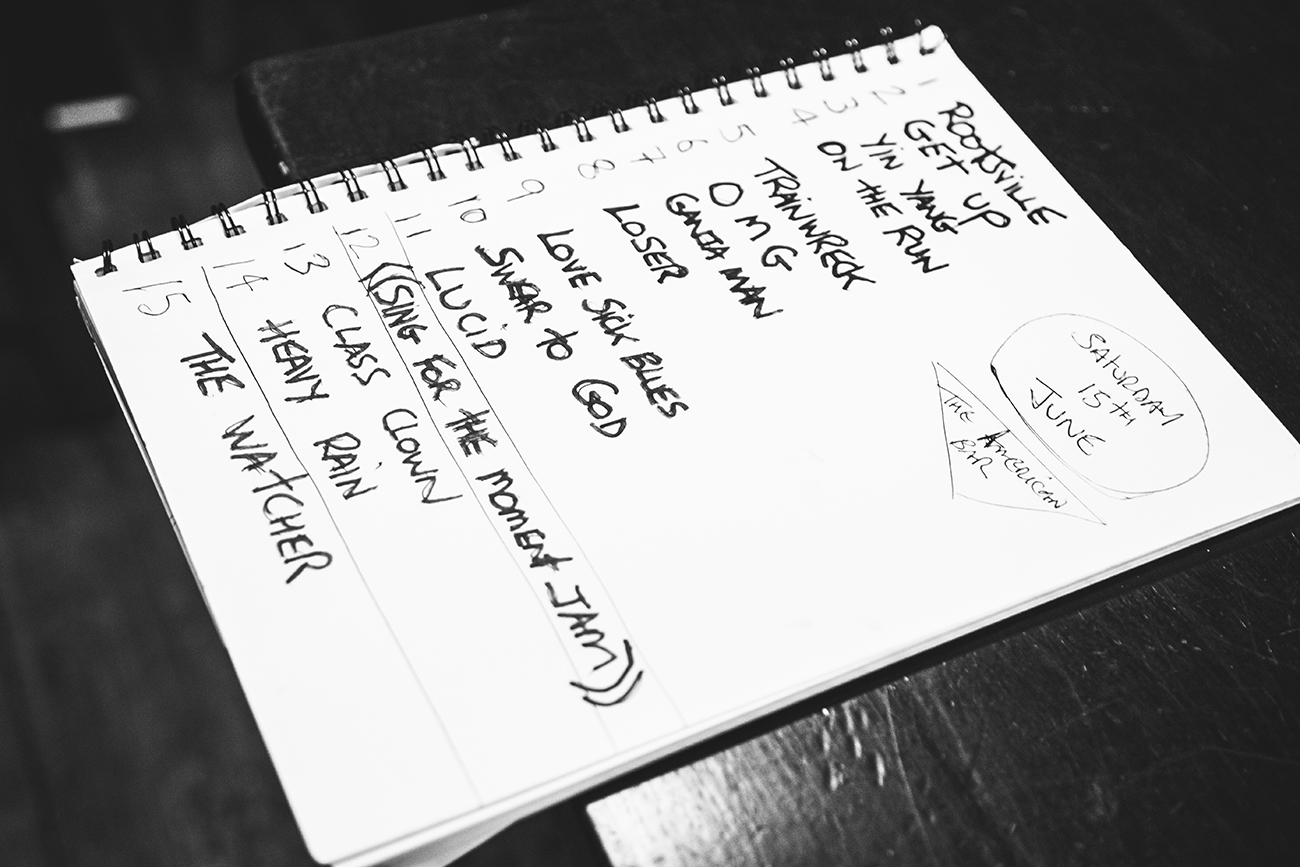 1 ROOTSVILLE
2 GET UP
3 YIN YANG
4 ON THE RUN
5 TRAINWRECK
6 OMG
7 GANJA MAN
8 LOSER
9 LOVE SICK BLUES
10 SWEAR TO GOD
11 LUCID
12 ((SING FOR THE MOMENT JAM))
13 CLASS CLOWN
14 HEAVY RAIN
15 THE WATCHER
SATURDAY
15TH
JUNE
THE AMERICAN
BAR